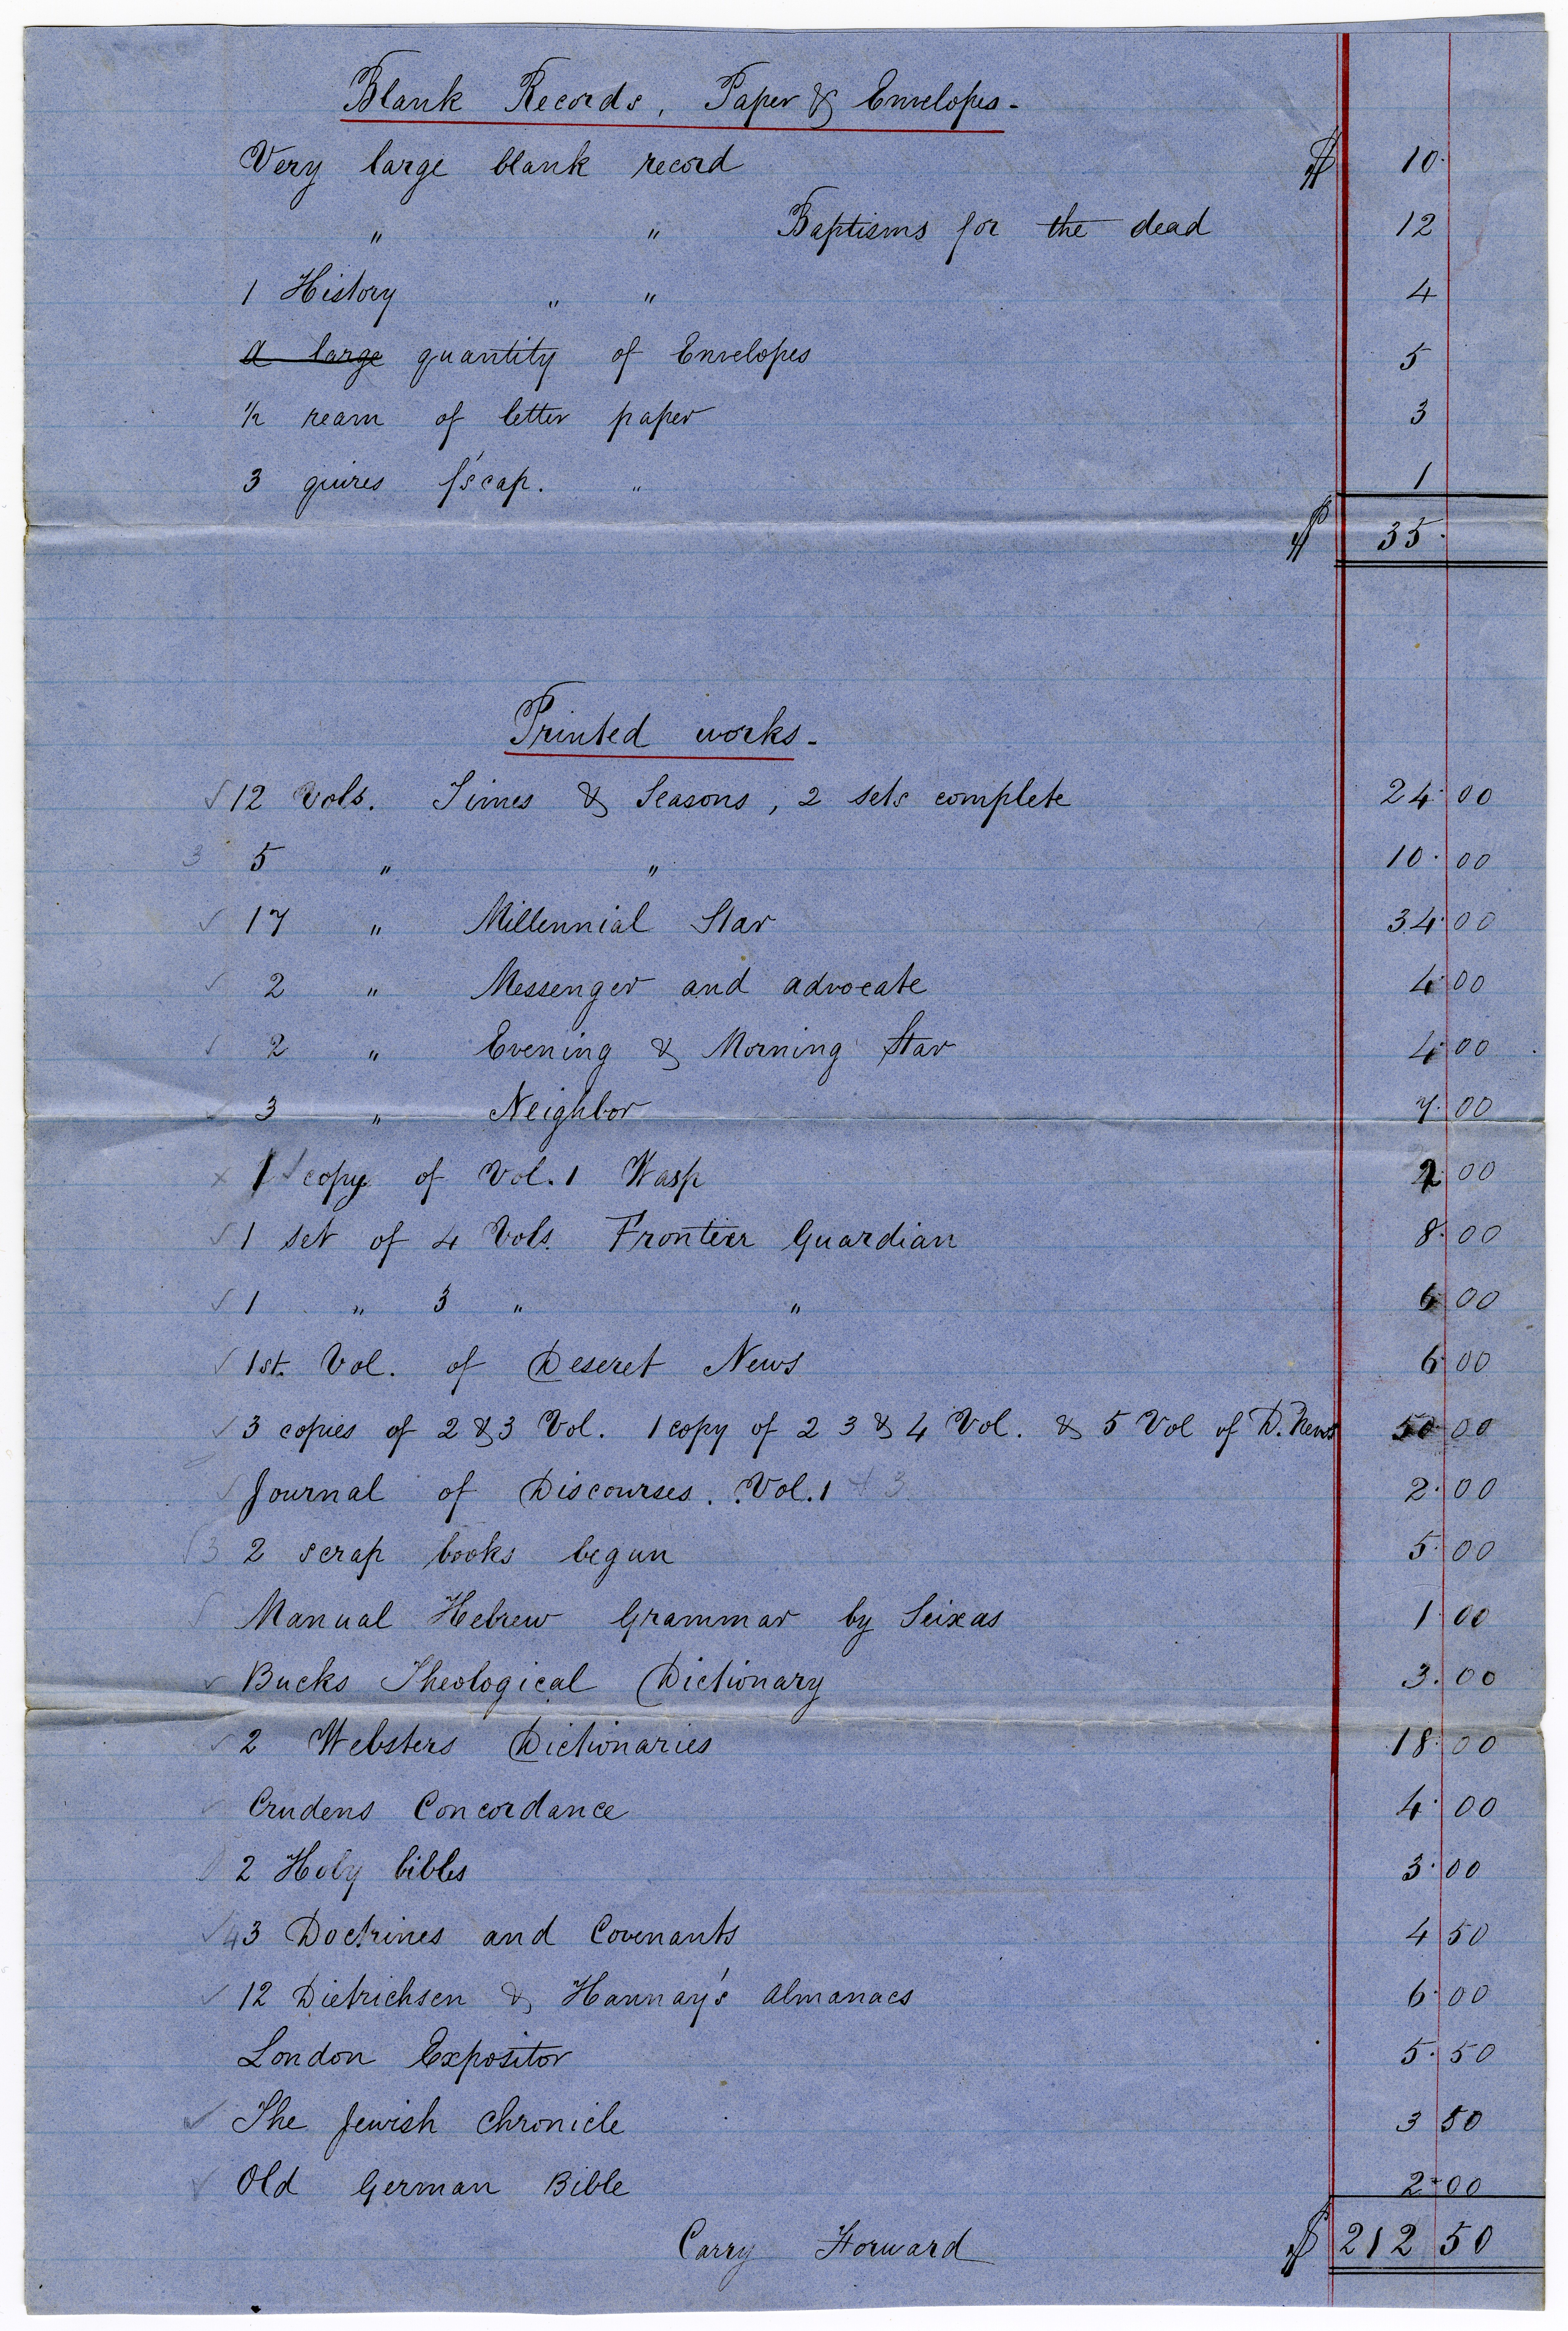 Blank Records, Paper & Envelopes-
Very large blank record $ 10.
" " Baptisms for the dead 12
1 History " " 4
a large quantity of Envelopes 5
1/2 ream of letter paper 3
3 quires f'scap. " 1
$ 35.
Printed works-
✓ 12 Vols. Times & Seasons, 2 sets complete 24.00
3 5 " " 10.00
✓ 17 " Millennial Star 34.00
✓ 2 " Messenger and advocate 4.00
✓ 2 " Evening & Morning Star 4.00
✓ 3 " Neighbor 7.00
x 1 ✓ copy of Vol. 1 Wasp 2.00
✓ 1 set of 4 Vols. Frontier Guardian 8.00
✓ 1 " 3 " " 6.00
✓ 1st. Vol. of Deseret News 6.00
✓ 3 copies of 2 & 3 Vol. 1 copy of 2 3 & 4 Vol. & 5 Vol of D. News 50.00
✓ Journal of Discourses. Vol. 1 & 3 2.00
✓ 3 2 scrap books begun 5.00
✓ Manual Hebrew Grammar by Seixas 1.00
✓ Bucks Theological Dictionary 3.00
✓ 2 Websters Dictionaries 18.00
✓ Crudens Concordance 4.00
2 Holy bibles 3.00
✓ 4 3 Doctrines and Covenants 4 50
✓ 12 Dietrichsen & Hannay's almanacs 6.00
London Expositor 5.50
✓ The Jewish Chronicle 3 50
✓ Old German Bible 2.00
Carry Forward $ 212 50